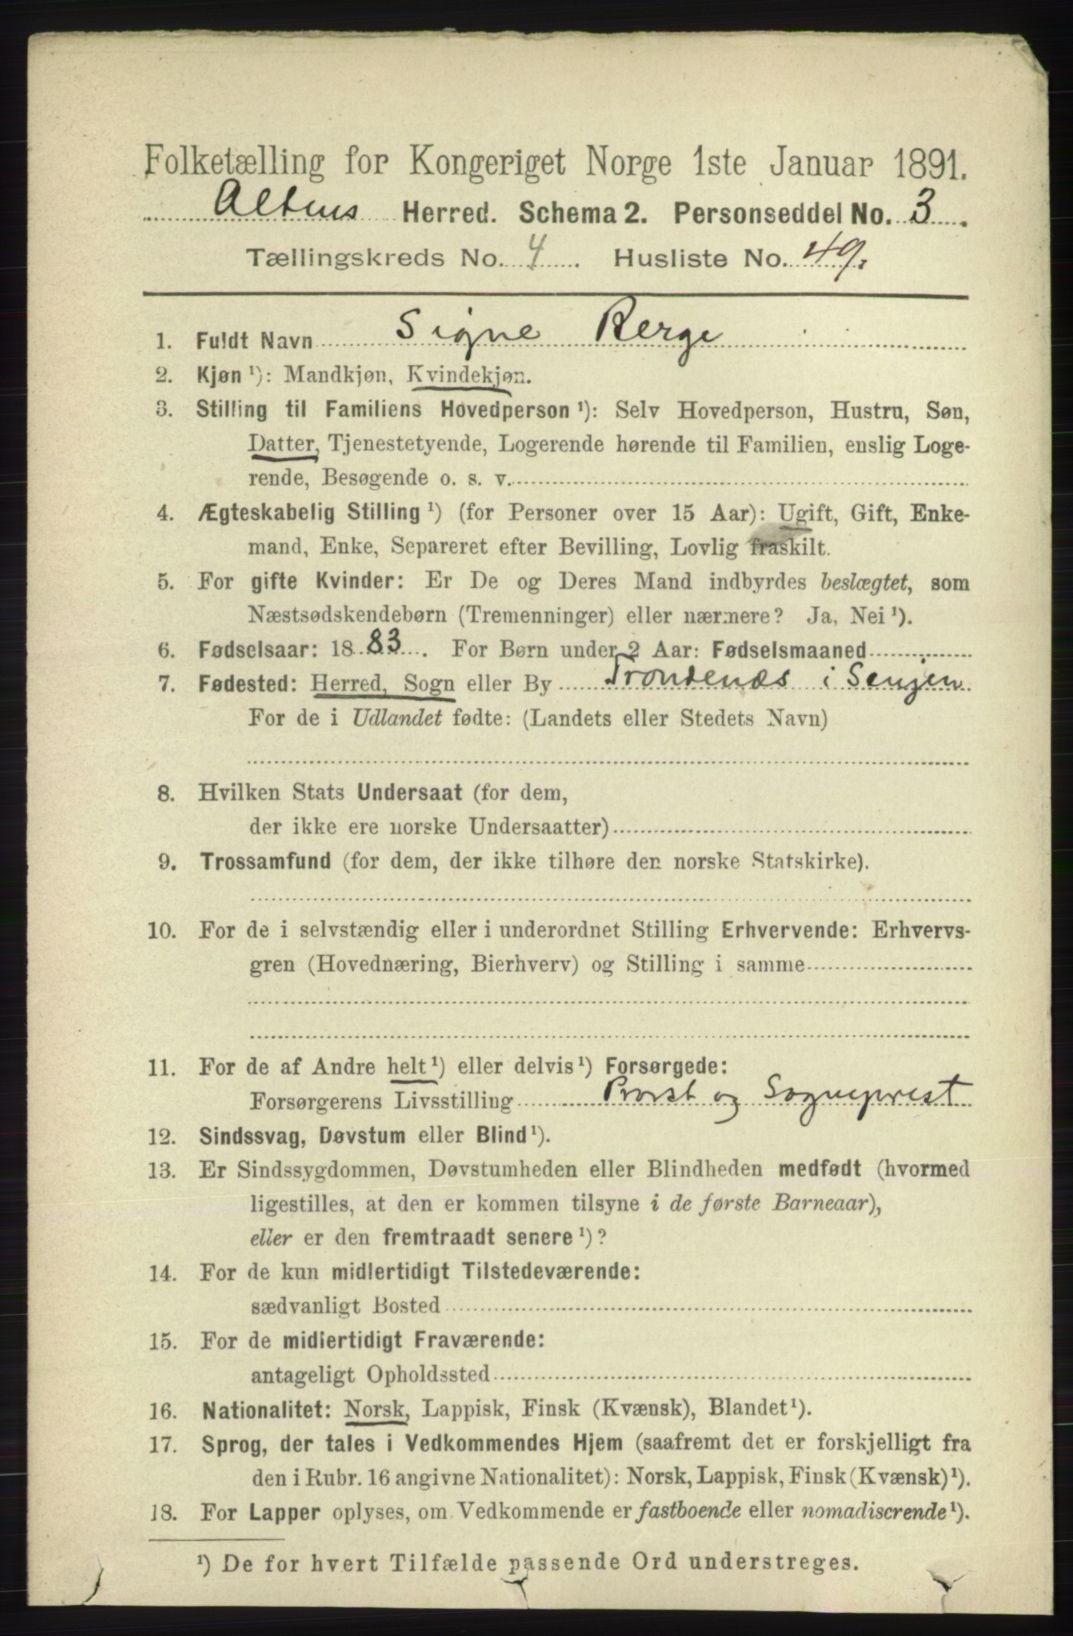 Folketælling for Kongeriget Norge 1ste Januar 1891.
Altens Herred. Schema 2. Personseddel No. 3.
Tællingskreds No. 4. Husliste No. 49.
1. Fuldt Navn Signe Berge
2. Kjøn ¹): Mandkjøn, Kvindekjøn.
3. Stilling til Familiens Hovedperson ¹): Selv Hovedperson, Hustru, Søn,
Datter, Tjenestetyende, Logerende hørende til Familien, enslig Loge-
rende, Besøgende o. s. v.
4. Ægteskabelig Stilling ¹) (for Personer over 15 Aar): Ugift, Gift, Enke-
mand, Enke, Separeret efter Bevilling, Lovlig fraskilt.
5. For gifte Kvinder: Er De og Deres Mand indbyrdes beslægtet, som
Næstsødskendebørn (Tremenninger) eller nærmere? Ja, Nei ¹).
6. Fødselsaar: 1883. For Børn under 2 Aar: Fødselsmaaned
7. Fødested: Herred, Sogn eller By Trondenæs i Senjen
For de i Udlandet fødte: (Landets eller Stedets Navn)
8. Hvilken Stats Undersaat (for dem,
der ikke ere norske Undersaatter)
9. Trossamfund (for dem, der ikke tilhøre den norske Statskirke).
10. For de i selvstændig eller i underordnet Stilling Erhvervende: Erhvervs-
gren (Hovednæring, Bierhverv) og Stilling i samme
11. For de af Andre helt ¹) eller delvis ¹) Forsørgede:
Forsørgerens Livsstilling Provst og Sogneprest
12. Sindssvag, Døvstum eller Blind ¹).
13. Er Sindssygdommen, Døvstumheden eller Blindheden medfødt (hvormed
ligestilles, at den er kommen tilsyne i de første Barneaar),
eller er den fremtraadt senere ¹)?
14. For de kun midlertidigt Tilstedeværende:
sædvanligt Bosted
15. For de midlertidigt Fraværende:
antageligt Opholdssted
16. Nationalitet: Norsk, Lappisk, Finsk (Kvænsk), Blandet ¹).
17. Sprog, der tales i Vedkommendes Hjem (saafremt det er forskjelligt fra
den i Rubr. 16 angivne Nationalitet): Norsk, Lappisk, Finsk (Kvænsk) ¹).
18. For Lapper oplyses, om Vedkommende er fastboende eller nomadiserende ¹).
¹) De for hvert Tilfælde passende Ord understreges.